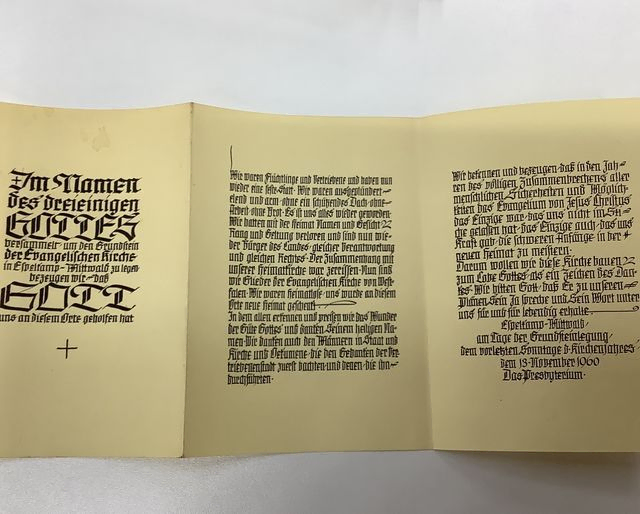 Im Namen
des dreieinigen
GOTTES
versammelt · um den Grundstein
der Evangelischen Kirche
in Espelkamp-Mittwald zu legen
bezeugen wir · daß
GOTT
uns an diesem Orte geholfen hat
Wir waren Flüchtlinge und Vertriebene und haben nun
wieder eine feste Statt · Wir waren ausgeplündert
elend und arm · ohne ein schützendes Dach · ohne
Arbeit · ohne Brot · Es ist uns alles wieder geworden ·
Wir hatten mit der Heimat Namen und Gesicht ·
Rang und Geltung verloren und sind nun wie-
der Bürger des Landes · gleicher Verantwortung
und gleichen Rechtes · Der Zusammenhang mit
unserer Heimatkirche war zerrissen · Nun sind
wir Glieder der Evangelischen Kirche von West-
falen · Wir waren heimatlos · uns wurde an diesem
Orte neue Heimat geschenkt
In dem allen erkennen und preisen wir das Wunder
der Güte Gottes und danken Seinem heiligen Na-
men · Wir danken auch den Männern in Staat und
Kirche und Oekumene · die den Gedanken der Ver-
triebenenstadt zuerst dachten · und denen · die ihn
durchführten ·
Wir bekennen und bezeugen · daß in den Jah-
ren des völligen Zusammenbrechens aller
menschlichen Sicherheiten und Möglich-
keiten das Evangelium von Jesus Christus
das Einzige war · das uns nicht im Sti-
che gelassen hat · das Einzige auch · das uns
Kraft gab · die schweren Anfänge in der
neuen Heimat zu meistern ·
Darum wollen wir diese Kirche bauen
zum Lobe Gottes · als ein Zeichen des Dan-
kes · Wir bitten Gott · daß Er zu unseren
Plänen Sein Ja spreche und Sein Wort unter
uns für und für lebendig erhalte
Espelkamp-Mittwald ·
am Tage der Grundsteinlegung ·
dem vorletzten Sonntage d · Kirchenjahres ·
dem 13 · November 1960
Das Presbyterium ·